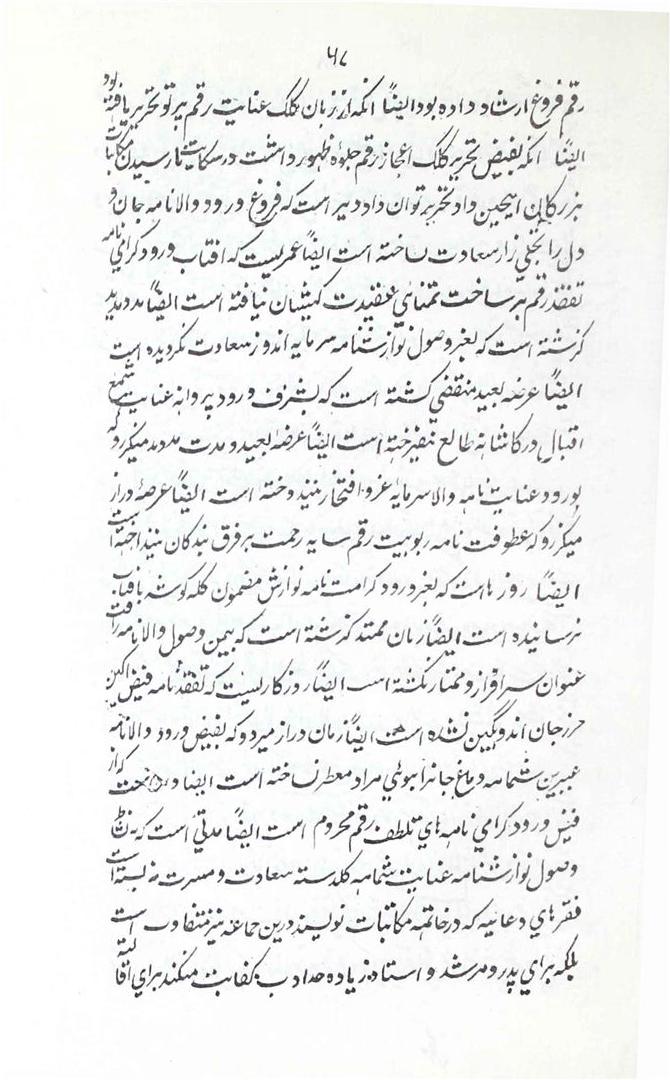 ۶۷
رقم فروغ ارشاد داده بود ایضاً آنکه از زبان کلک عنایت رقم پرتو تحریر یافته بود
ایضاً آنکه بفیض تحریر کلک اعجاز رقم جلوهٔ ظهور داشت در شکایت نارسیدن مکاتبات
بزرگان اینچنین داد تحریر توان داد دیر است که فروغ ورود والانامه جان و
دل را تجلی زار سعادت نساخته است ایضاً عمریست که آفتاب ورود گرامی نامه
تفقد رقم بر ساحت تمنای عقیدت کیشان نیافته است ایضاً مدد مدید
گزشته است که بغیر وصول نوازشنامه سرمایه اندوز سعادت نگردیده است
ایضاً عرصه بعید منقضی گشته است که بشرف ورود پروانه عنایت شمع
اقبال در کاشانهٔ طالع نیفروخته است ایضاً عرصهٔ بعید و مدت مدید میگزرد که
بورود عنایت نامه والا سرمایهٔ عز و افتخار نیندوخته است ایضاً عرصهٔ دراز
میگزرد که عطوفت نامه ربوبیت رقم سایه رحمت بر فرق بندگان نینداخته است
ایضاً روزهاست که بغیر ورود کرامت نامه نوازش مضمون کله گوشه بآفتاب
نرسانیده است ایضاً زمان ممتد گزشته است که بیمن وصول والانامه رافت
عنوان سرافراز و ممتاز نگشته است ایضاً روزگاریست که تفقد نامه فیض آگین
حرز جان اندوهگین نشده است ایضاً زمان دراز میرود که بفیض ورود والانامه
عنبرین شمامه دماغ جانرا ببوئی مراد معطر نساخته است ایضاً که از
فیض ورود گرامی نامه های تلطف رقم محروم است ایضاً مدتی است که
وصول نوازشنامه عنایت شمامه گلدسته سعادت و مسرت نه بسته است
فقرهای دعائیه که در خاتمه مکاتبات نویسند درین جماعه نیز متفاوت است
بلکه برای پدر و مرشد و استاد زیاده حد ادب کفایت میکند برای آقا البته